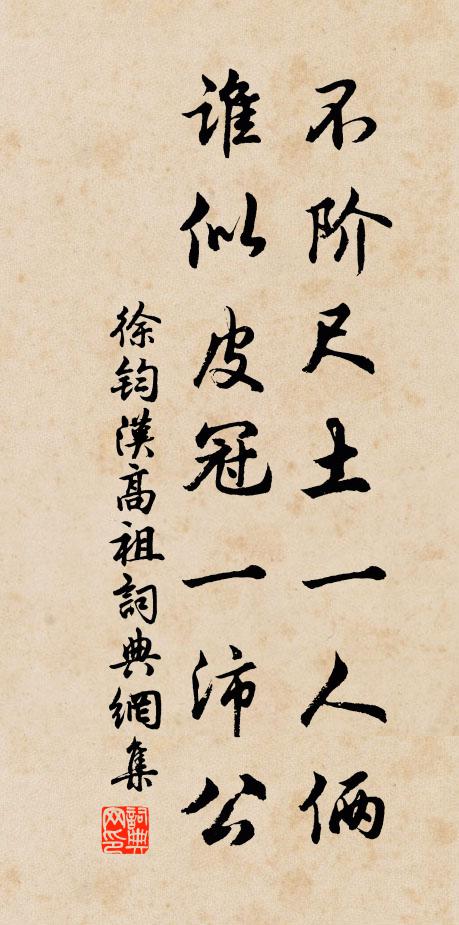 不阶尺土一人俩
谁似皮冠一沛公
徐钧漢高祖詞典網集
詞典网印